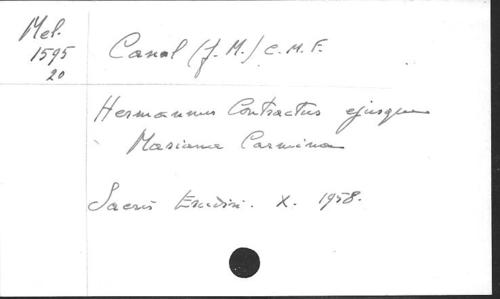 Mel.
1595
20
Canal (J. M.) C. M. F.
Hermannus Contractus ejusque
Mariana Carmina
Sacris Erudiri. X. 1958.